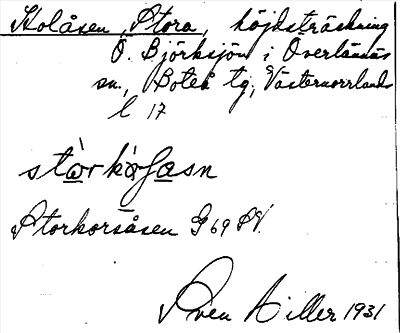 Kolåsen, Stora, höjdsträckning
Ö. Björksjön i Överlännäs
sn., Boteå tg, Västernorrlands
l 17
Storkorsåsen G 69 SV.
Sven Hiller 1931